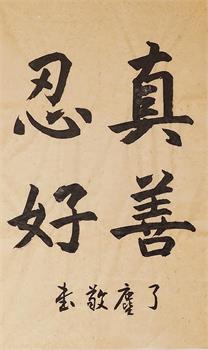 真善
忍好
了塵敬書